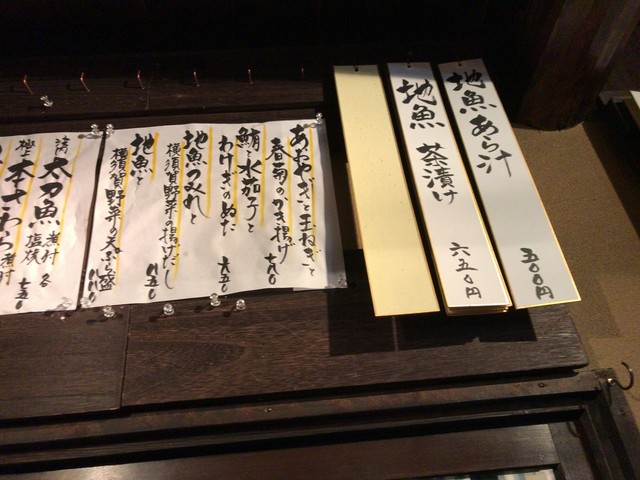 地魚あら汁
五〇〇円
地魚 茶漬け
六五〇円
あおやぎと玉ねぎと
春菊のかき揚げ
七八〇
鮪と水茄子と
わけぎのぬた
六五〇
地魚つみれと
横須賀野菜の揚げだし
八五〇
地魚と
横須賀野菜の天ぷら盛
太刀魚
煮付
塩焼
各
本さわら
煮付
七五〇